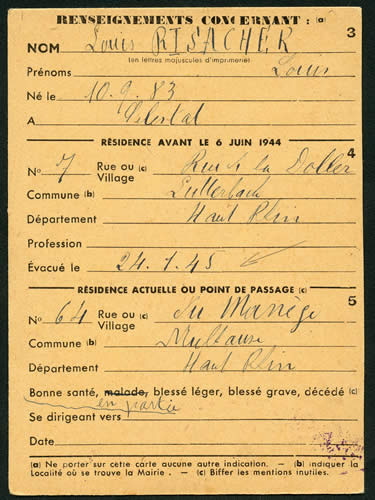 RENSEIGNEMENTS CONCERNANT : (a)
3
NOM Louis RISACHER
(en lettres majuscules d'imprimerie)
Prénoms Louis
Né le 10.9.83
A Selestat
RÉSIDENCE AVANT LE 6 JUIN 1944
4
No 7 Rue ou (c) Village Rue de la Doller
Commune (b) Lutterbach
Département Haut Rhin
Profession
Évacué le 24.1.45
RÉSIDENCE ACTUELLE OU POINT DE PASSAGE (c)
5
No 64 Rue ou (c) Village du Manège
Commune (b) Mulhouse
Département Haut Rhin
Bonne santé, malade, blessé léger, blessé grave, décédé (c)
en partie
Se dirigeant vers
Date
(a) Ne porter sur cette carte aucune autre indication. — (b) indiquer la
Localité où se trouve la Mairie. — (c) Biffer les mentions inutiles.